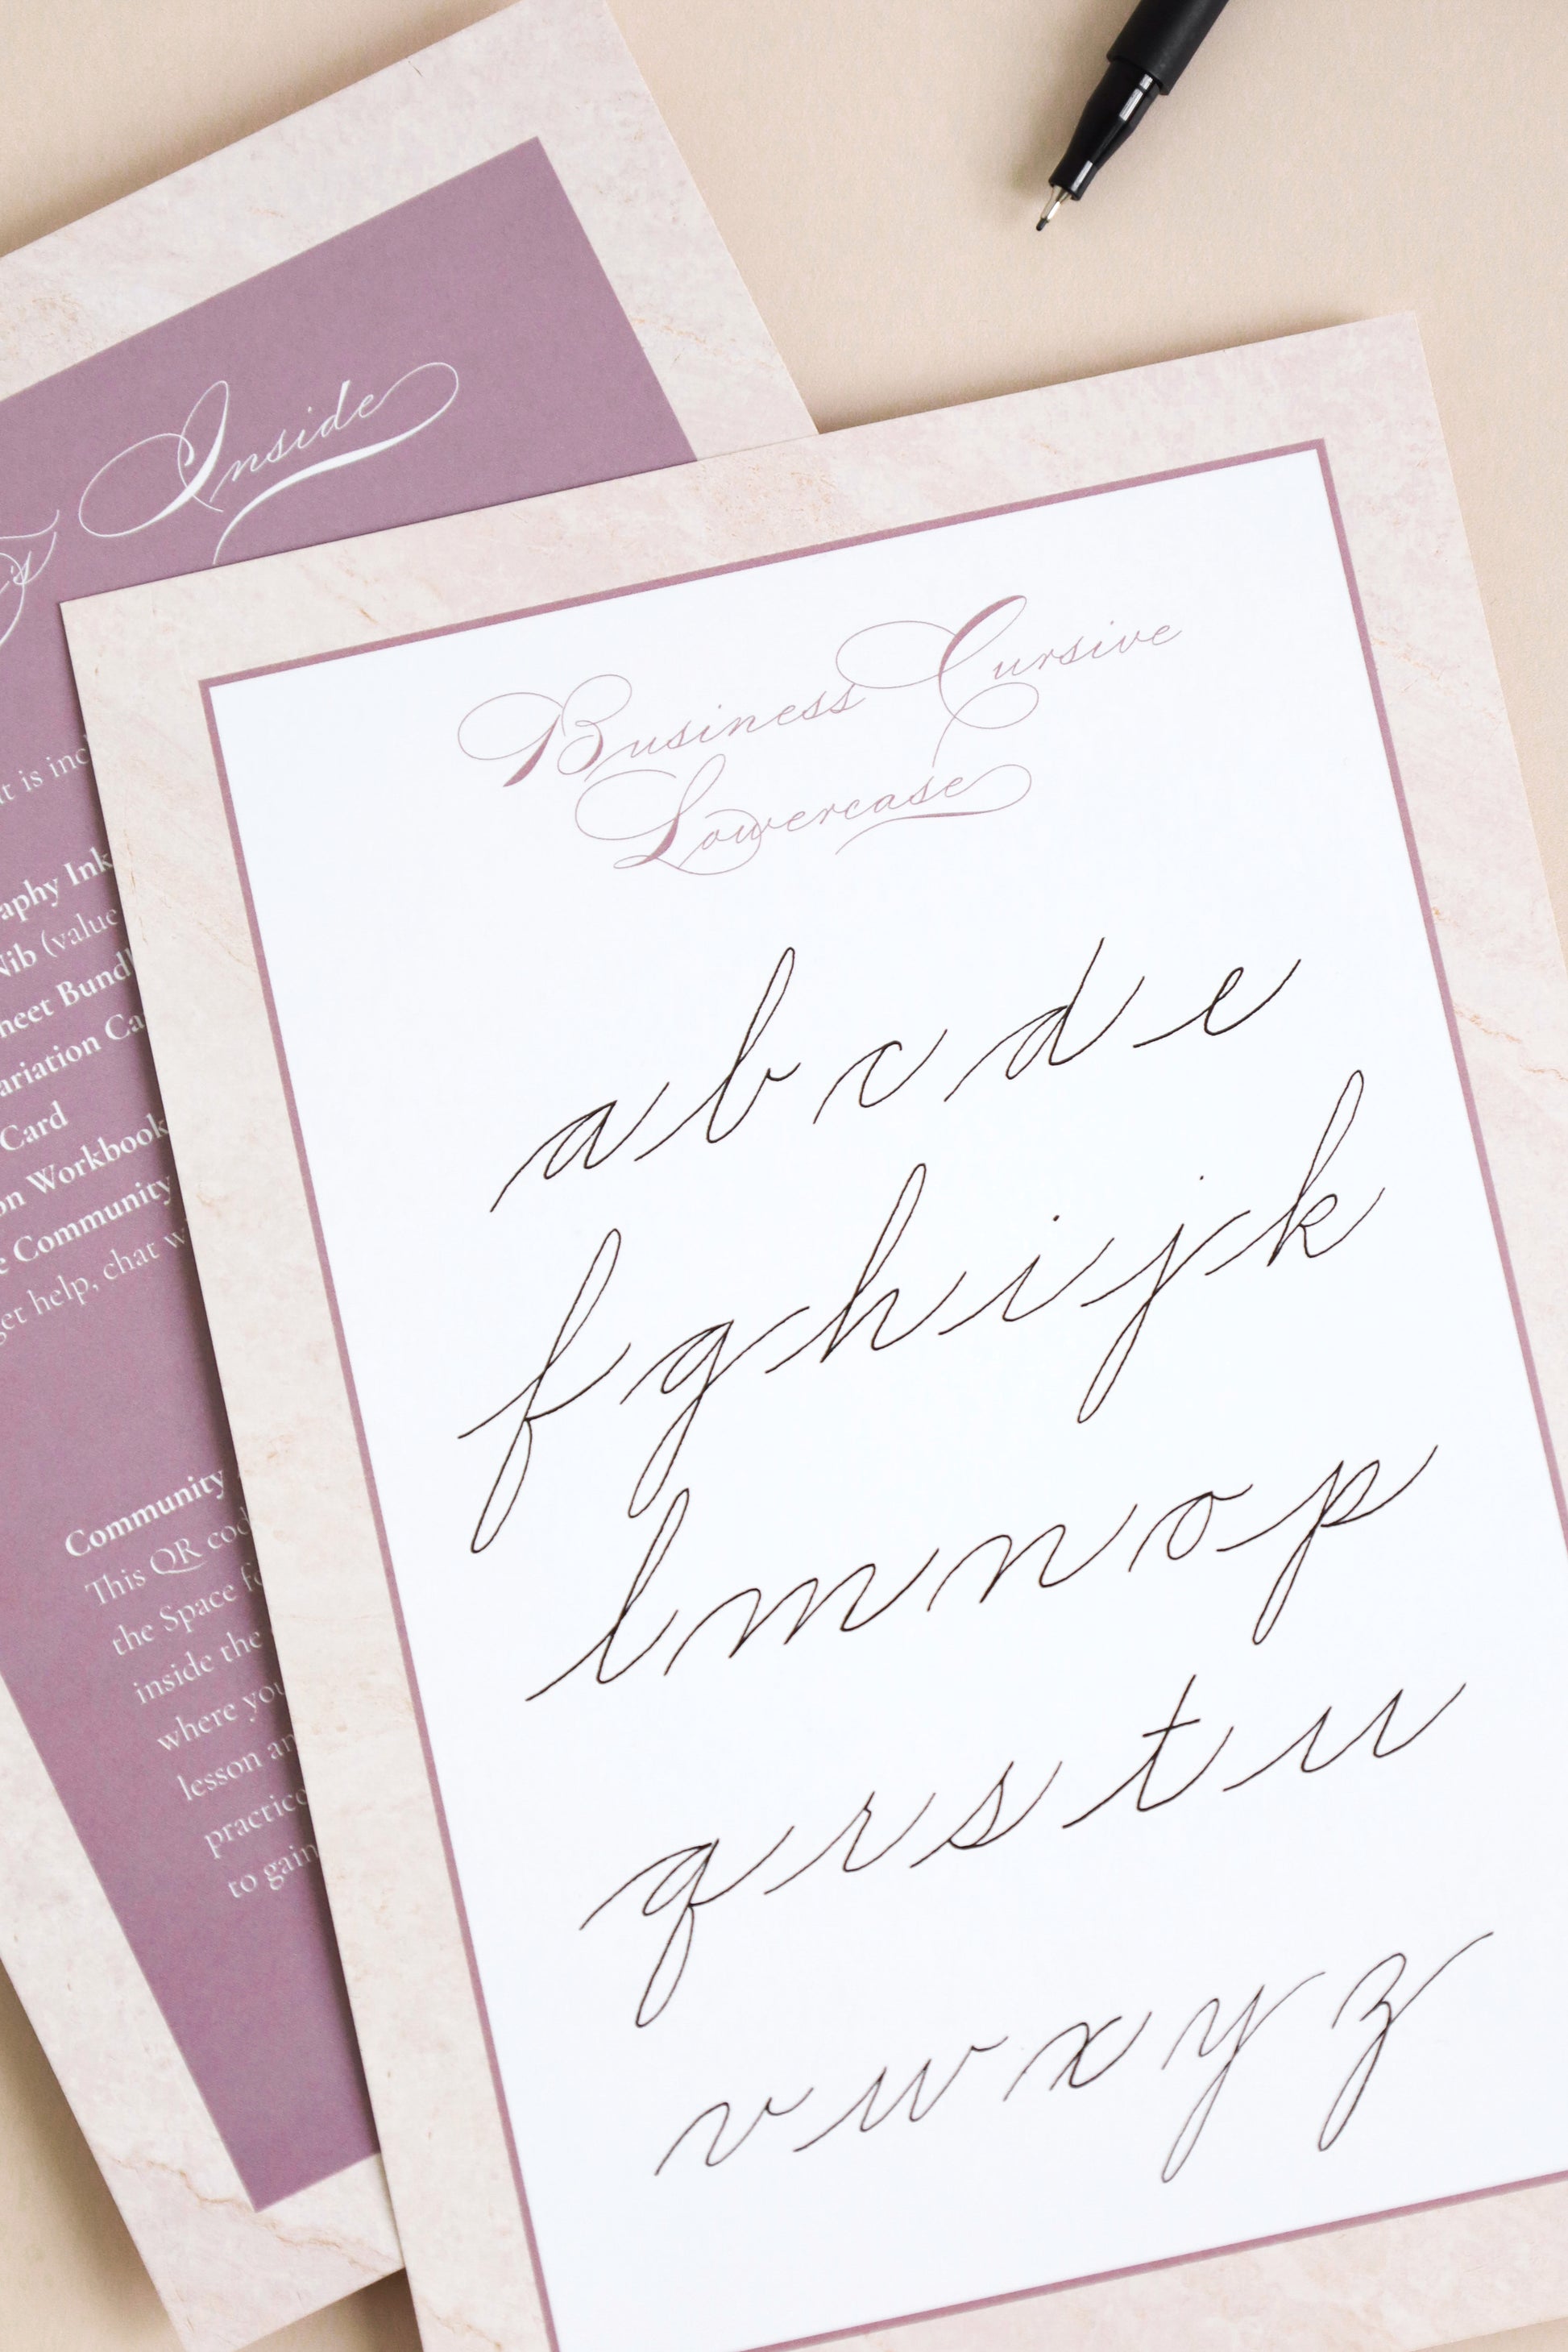 Inside
t is inc
aphy Ink
Nib (value
heet Bundl
ariation Ca
Card
on Workbook
e Community
get help, chat w
Community
This QR cod
the Space fo
inside the
where you
lesson an
practice
to gain
Business Cursive
Lowercase
a b c d e
f g h i j k
l m n o p
q r s t u
v w x y z